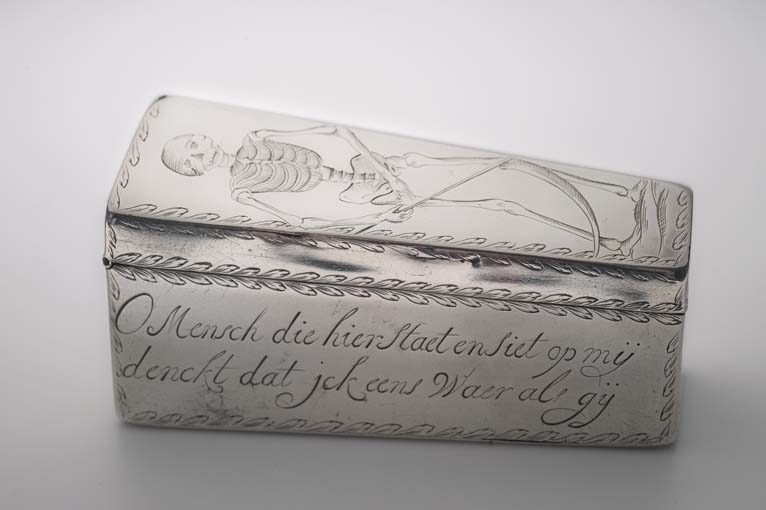 O Mensch die hier staet en siet op mij
denckt dat jck eens Waer als gij